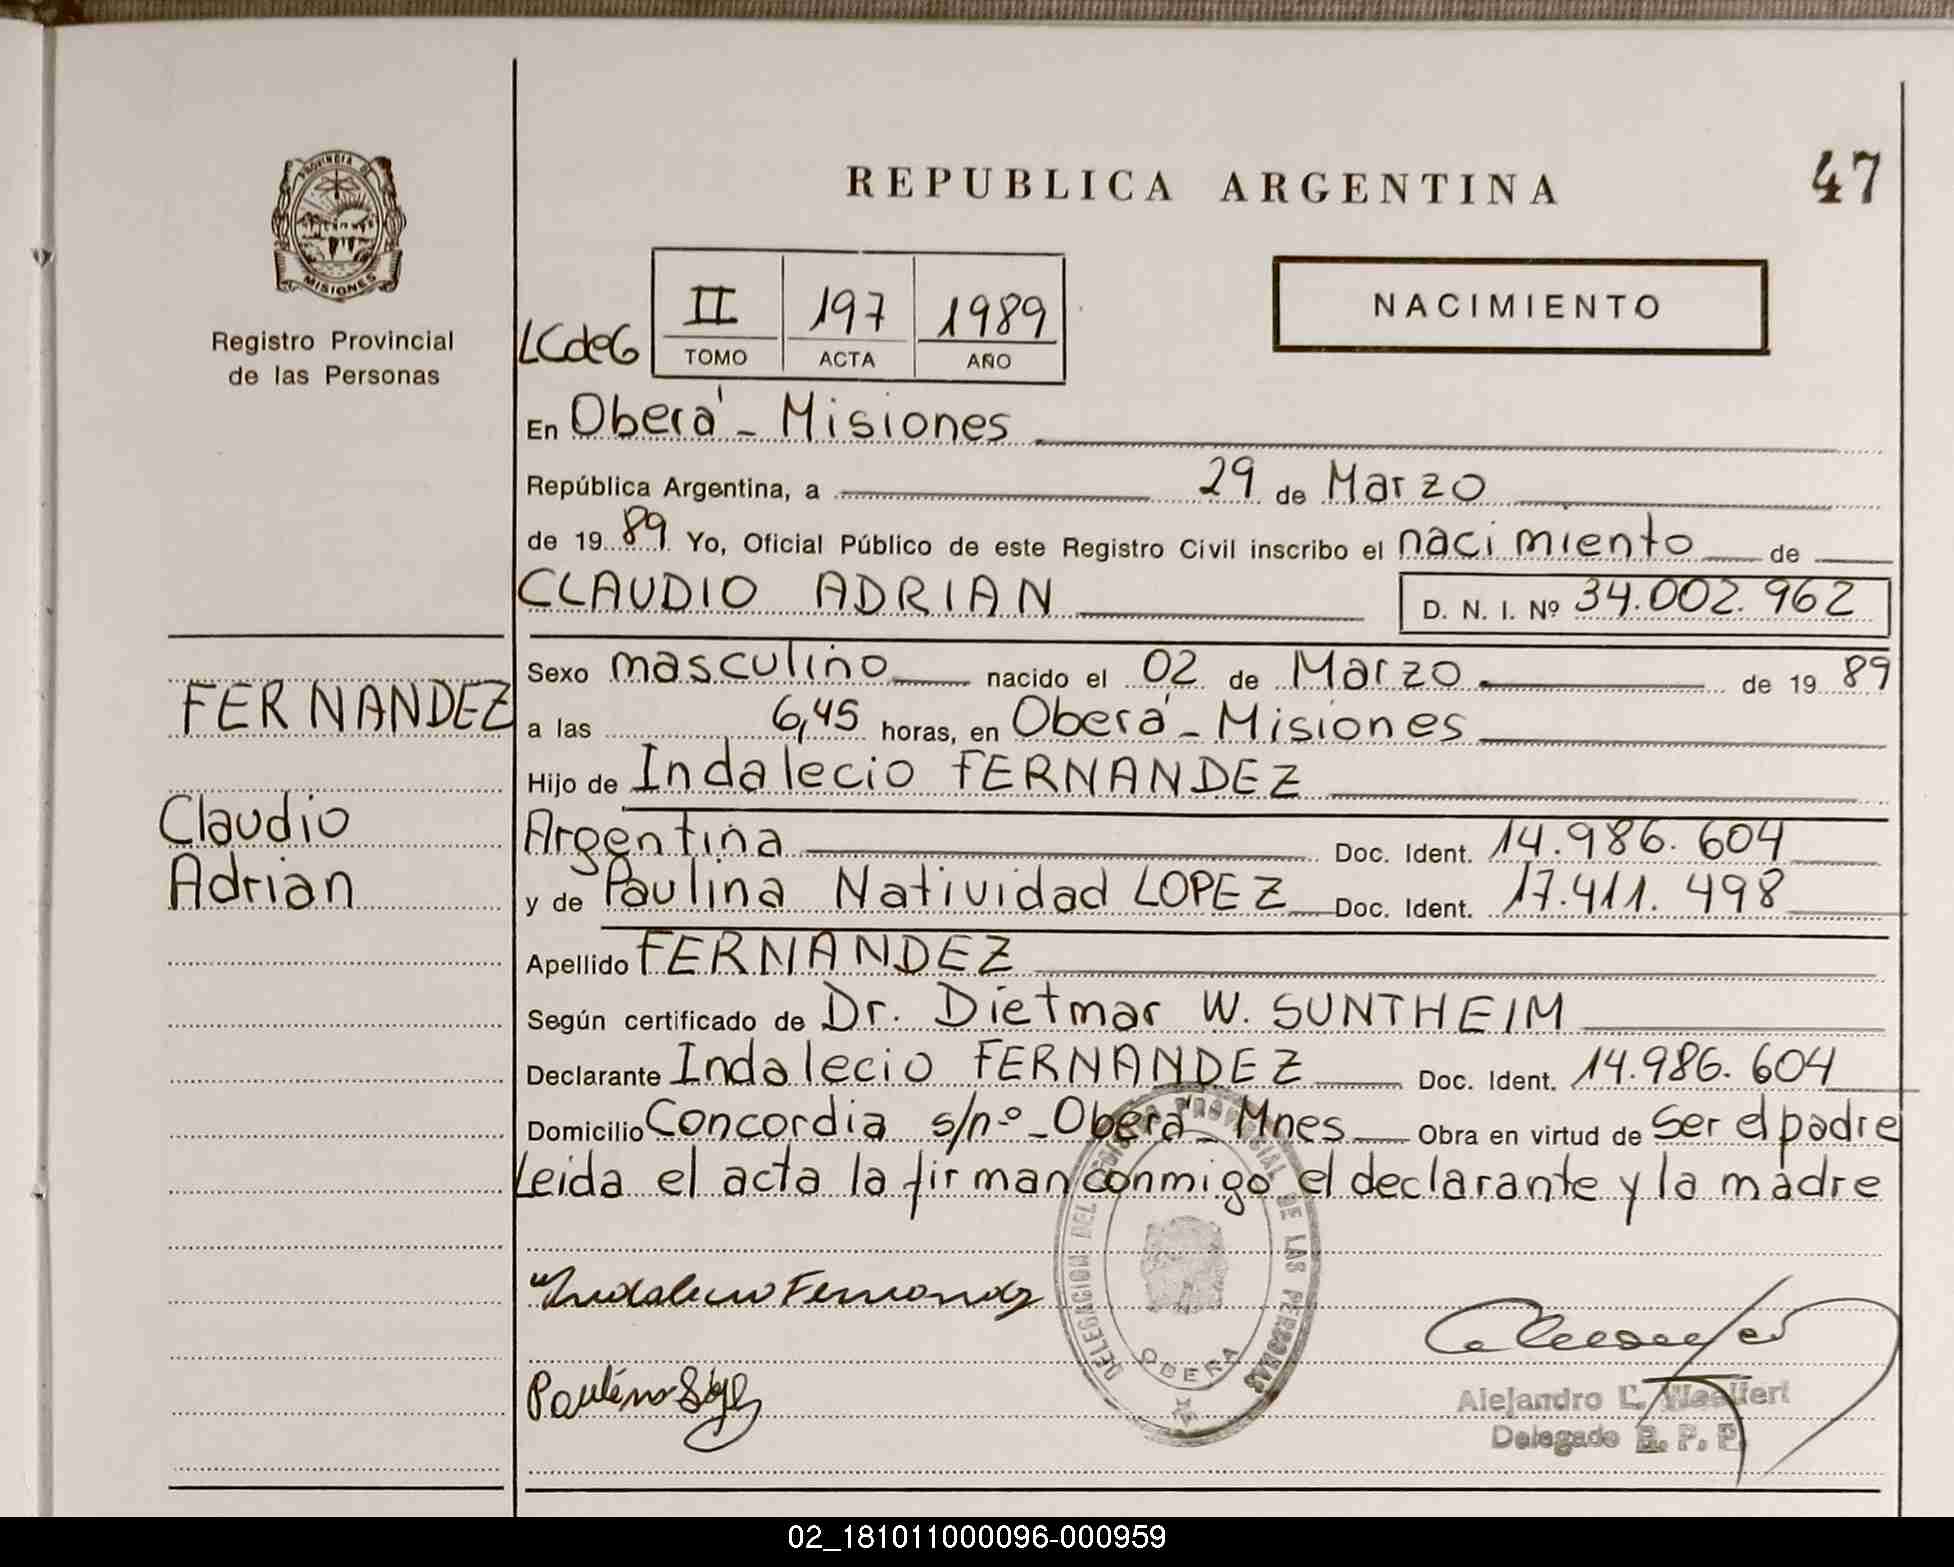 REPUBLICA ARGENTINA
47
PROVINCIA DE
MISIONES
Registro Provincial
de las Personas
LCdeG
II 197 1989
TOMO ACTA AÑO
NACIMIENTO
En Oberá - Misiones
República Argentina, a 29 de Marzo
de 19 89 Yo, Oficial Público de este Registro Civil inscribo el nacimiento de
CLAUDIO ADRIAN D. N. I. Nº 34.002.962
FERNANDEZ
Claudio
Adrian
Sexo masculino nacido el 02 de Marzo de 19 89
a las 6,45 horas, en Oberá - Misiones
Hijo de Indalecio FERNANDEZ
Argentina Doc. Ident. 14.986.604
y de Paulina Natividad LOPEZ Doc. Ident. 17.411.498
Apellido FERNANDEZ
Según certificado de Dr. Dietmar W. SUNTHEIM
Declarante Indalecio FERNANDEZ Doc. Ident. 14.986.604
Domicilio Concordia s/nº - Oberá - Mnes Obra en virtud de Ser el padre
Leida el acta la firman conmigo el declarante y la madre
Indalecio Fernandez
Paulina López
DELEGACION DEL REGISTRO PROVINCIAL DE LAS PERSONAS
OBERA
Alejandro L.
Delegado R. P. P.
02_181011000096-000959